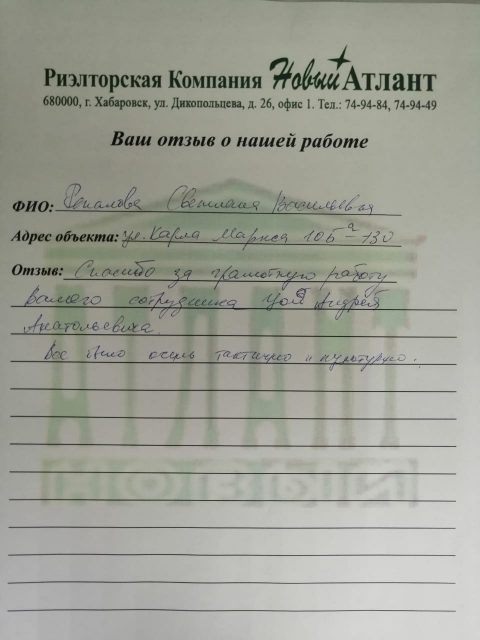 Риэлторская Компания Новый Атлант
680000, г. Хабаровск, ул. Дикопольцева, д. 26, офис 1. Тел.: 74-94-84, 74-94-49
Ваш отзыв о нашей работе
ФИО: Светлана Васильевна
Адрес объекта: ул. Карла Маркса 105а-130
Отзыв: Спасибо за грамотную работу
Вашего сотрудника Цой Андрея
Анатольевича.
Все было очень тактично и культурно.
АТЛАНТ